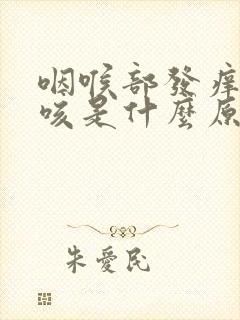 咽喉部發痒
咳是什麼原
朱愛民